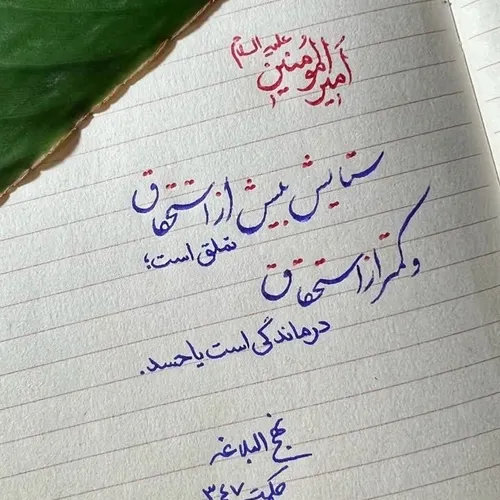 امیرالمؤمنین علیه السلام
ستایش بیش از استحقاق
تملق است؛
و کمتر از استحقاق
درماندگی است یا حسد.
نهج البلاغه
حکمت ۳۴۷